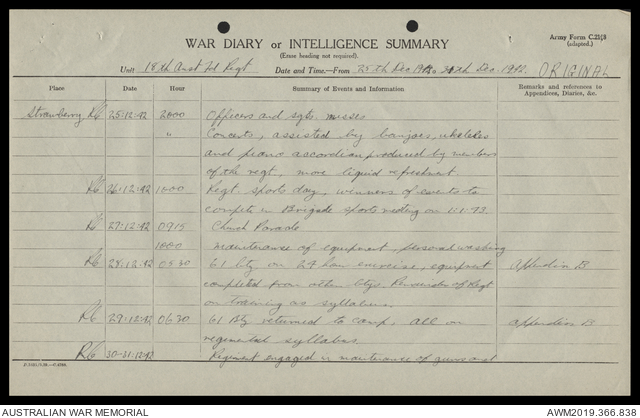 Army Form C.2118
(adapted.)
WAR DIARY or INTELLIGENCE SUMMARY
(Erase heading not required).
Unit 18th Aust Fd Regt Date and Time—From 25th Dec 1942 to 31th Dec. 1942. ORIGINAL
Place Date Hour Summary of Events and Information Remarks and references to
Appendices, Diaries, &c.
Strawberry R6 25:12:42 2000 Officers and sgts. messes
" Concerts, assisted by banjoes, ukeleles
and piano accordian produced by members
of the regt, more liquid refreshment
R6 26:12:42 1000 Regt sports day, winners of events to
compete in Brigade sports meeting on 1:1:43.
R6 27:12:42 0915 Church Parade
1000 maintenance of equipment, personal washing
R6 28:12:42 0530 61 bty on 24 hour exercise, equipment Appendix B
completed from other btys. Remainder of Regt
on training as syllabus.
R6 29:12:42 0630 61 Bty returned to camp, all on Appendix B
regimental syllabus
R6 30-31:12:42 Regiment engaged in maintenance of guns and
AUSTRALIAN WAR MEMORIAL AWM2019.366.838